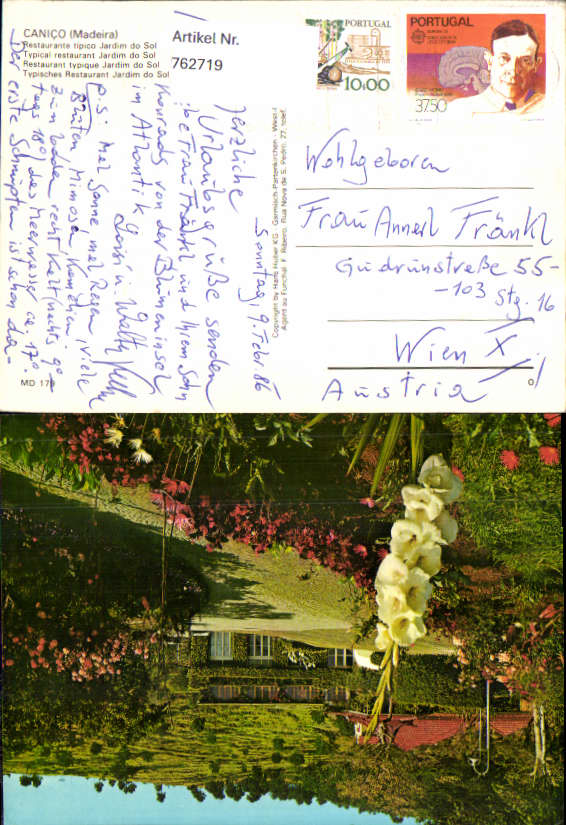 CANIÇO (Madeira)
Restaurante típico Jardim do Sol
Typical restaurant Jardim do Sol
Restaurant typique Jardim do Sol
Typisches Restaurant Jardim do Sol
Artikel Nr.
762719
PORTUGAL
10$00
PORTUGAL
EUROPA
37.50
Sonntag, 9. Febr. 86
Herzliche
Urlaubsgrüße senden
liebe Frau Fränkl und Ihrem Sohn
von der Blumeninsel
im Atlantik
p.s: Sonne Regen, viele
Blüten Mimosen, Kamelien
zum baden recht kalt (nachts 9°-
tags 18°) das Meerwasser ca 17°.
Der erste ist schon da-
Copyright by Hans Huber KG - Garmisch-Partenkirchen
Agent au Funchal: F. Ribeiro, Rua Nova de S. Pedro, 27, telef.
MD 179
Wohlgeboren
Frau Annerl Fränkl
Gudrunstreße 55-
-103 Stg. 16
Wien X
Austria